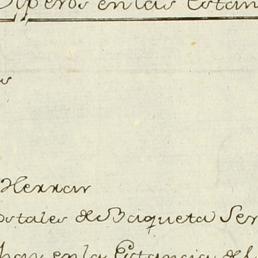 en las Estan
Herrar
ostales de Baqueta Ser
hay en la Estancia de